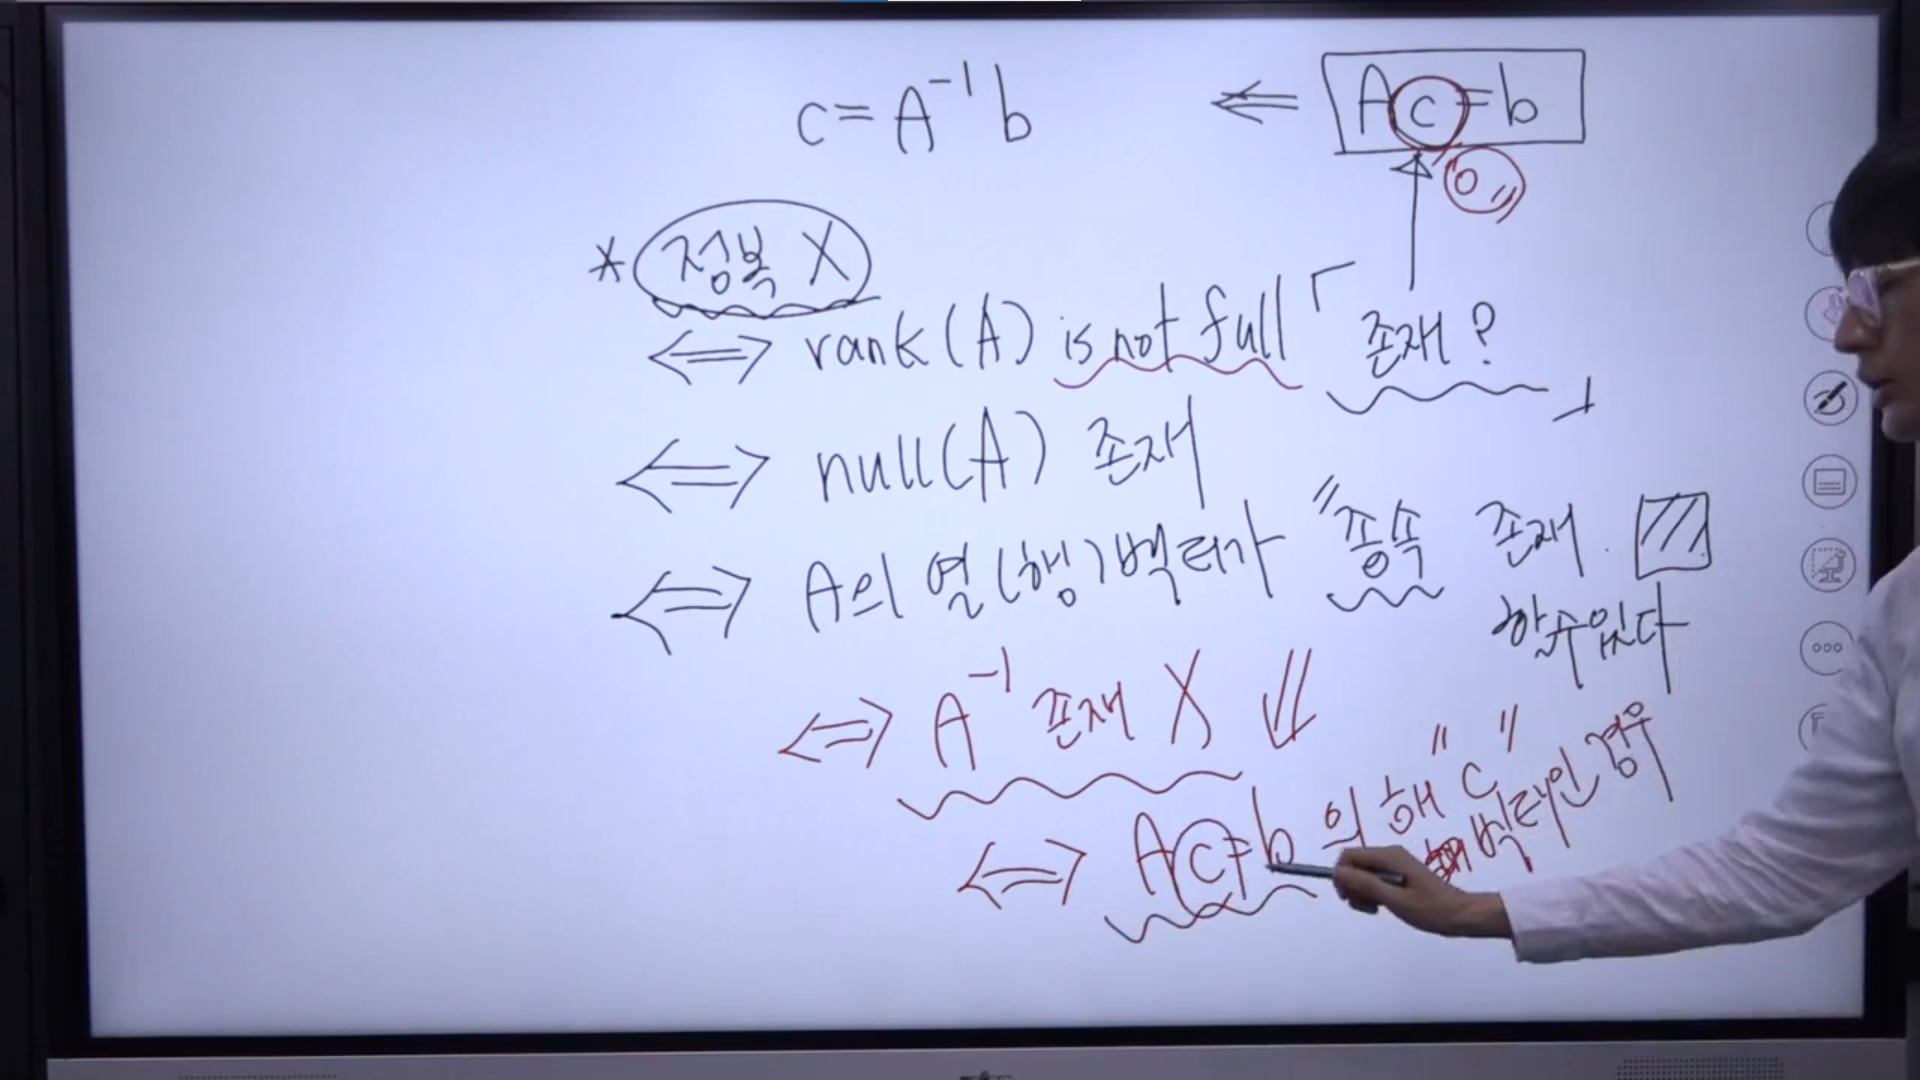 c = A⁻¹b ⇐ Ac = b
"0"
* 정복 X
⇔ rank(A) is not full 「 존재? 」
⇔ null(A) 존재
⇔ A의 열(행)벡터가 "종속 존재
할수있다
⇔ A⁻¹ 존재 X
⇔ Ac=b 의 해 "c"
벡터인 경우